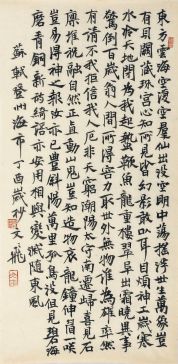 東方雲海空復空群仙出沒空明中蕩搖浮世生萬象豈
有貝闕藏珠宮心知所見皆幻影敢以耳目煩神工歲寒
水冷天地閉為我起蟄鞭魚龍重樓翠阜出霜曉異事
驚倒百歲翁人間所得容力取世外無物誰為雄率然
有請不我拒信我人厄非天窮潮陽太守南遷歸喜見石
廩堆祝融自言正直動山鬼豈知造物哀龍鐘伸眉一笑
豈易得神之報汝亦已豐斜陽萬里孤鳥沒但見碧海
磨青銅新詩綺語亦安用相與變滅隨東風
蘇軾登州海市 丁酉歲杪 文飛